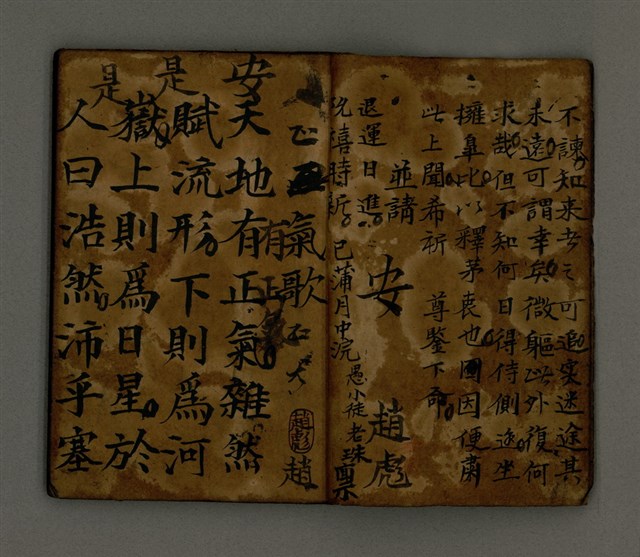 不諫知来者之可追寔迷途其
未遠可謂幸矣微軀此外復何
求哉但不知何日得侍側逸坐
擁皐比以釋茅衷也因因便肅
此上聞希祈　尊鑒下命
並請
安
退運日進
禧時新　巳蒲月中浣愚小徒老珠稟
趙彪
正氣歌
趙彪
趙
安天地有正氣雜然
有正
賦流形下則為河
是
嶽上則為日星於
是
人曰浩然沛乎塞